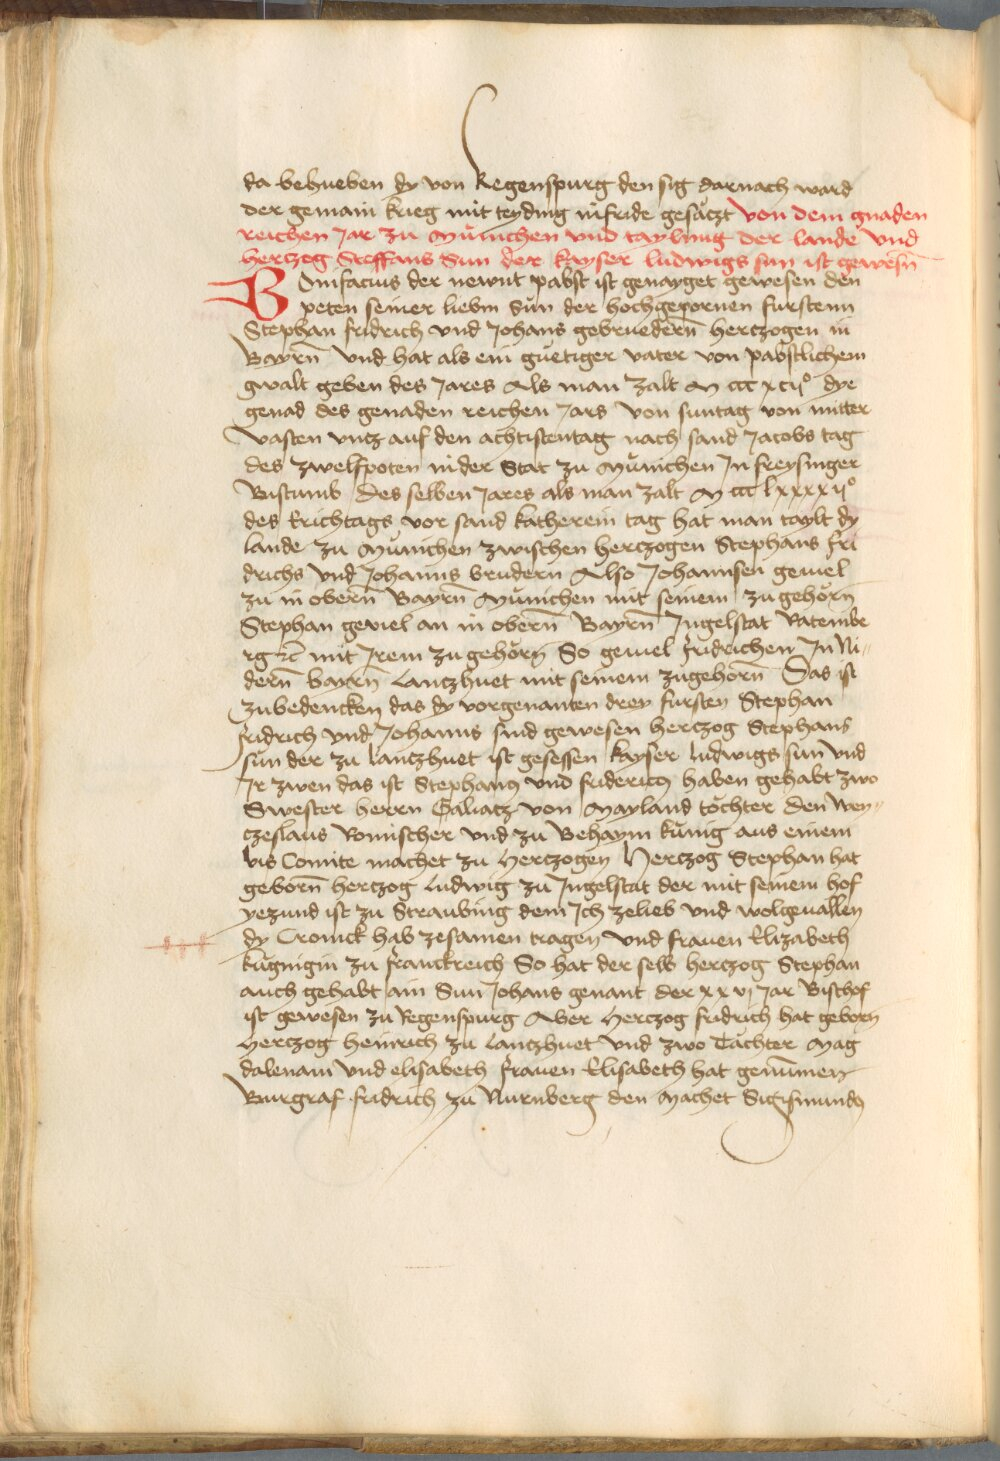 da behueben dy von Regenspurg den sig darnach ward
der gemain krieg mit teyding in fride gesäczt von dem gnaden
reichen Jar zu München vnd taylung der lande vnd
hertzog Steffans Sun der kayser ludwigs sun ist gewesn̄
Bonifacius der newnt pabst ist genayget gewesen den
peten seiner liebm̄ sün der hochgepornen furstenn
Stephan fridrich vnd Johans gebruedern̄ hertzogen in
Bayrn̄ vnd hat als ein güetiger vater von pabstlichem
gwalt geben des Jares Als man zalt M ccc xcijº dye
genad des genaden reichen Jars von suntag von mitter
vasten vntz auf den achtistentag nach sand Jacobs tag
des zwelfpoten in der Stat zu München Jn freysinger
Bistumb Des selben Jares als man zalt M ccc lxxxxijº
des Erichtags vor sand katherein tag hat man taylt dy
lande zu München zwischen hertzogen Stephans fri
drichs vnd Johanns brudern Also Johannsen geuiel
zu in obern̄ Bayrn̄ München mit seinem zugehörn̄
Stephan geviel an in obern̄ Bayrn̄ Jngelstat Ratembe
rg ꝛc̄ mit Jrem zugehörn̄ So geuiel fridrichen Jn Ni⸗
dern̄ bayrn̄ Lantzhuet mit seinem zugehörn̄ Das ist
zubedencken das dy vorgenanten drey fursten Stephan
fridrich vnd Johanns sind gewesen hertzog Stephans
sün der zu lantzhuet ist gesessen kayser ludwigs sun vnd
Jr zwen das ist Stephanꝰ vnd fridericꝰ haben gehabt zwo
Swester herrn Galiatz von Mayland töchter den Wen⸗
czeslaus Romischer vnd zu Behaym kunig aus einem
vis Comite machet zu hertzogen Hertzog Stephan hat
geborn̄ hertzog Ludwig zu Jngelstat der mit seinem hof
yezund ist zu Straubing dem Jch zelieb vnd wolgeuallen
dy Cronick hab zesamen tragen vnd frauen Elizabeth
kügnigin zu franckreich So hat der selb hertzog Stephan
auch gehabt ain Sun Johans genant der xxvj Jar Bischof
ist gewesen zu Regenspurg Aber hertzog fridrich hat geborn̄
Hertzog heinrich zu Lantzhuet vnd zwo Tächter Mag
dalenam vnd elisabeth frauen Elisabeth hat genūmen
Burgraf fridrich zu Nurnberg den machet Sigismundꝰ